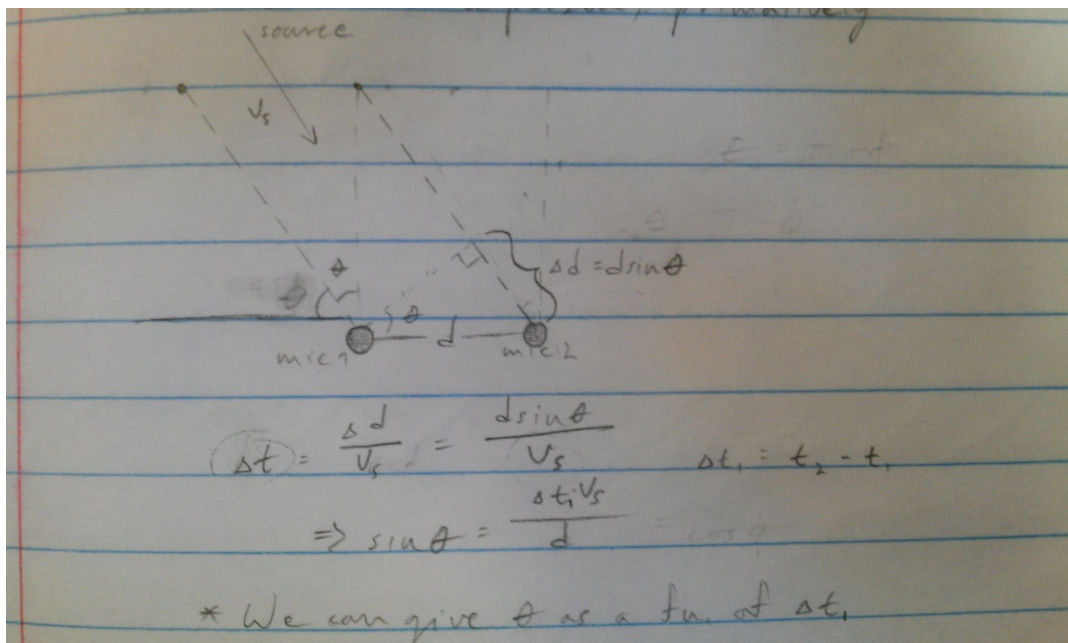 primatively
source
Vs
θ
θ
θ
Δd = dsinθ
mic1
d
mic2
Δt = Δd/Vs = dsinθ/Vs
Δt₁ = t₂ - t₁
=> sinθ = Δt₁Vs/d
* We can give θ as a fn. of Δt₁